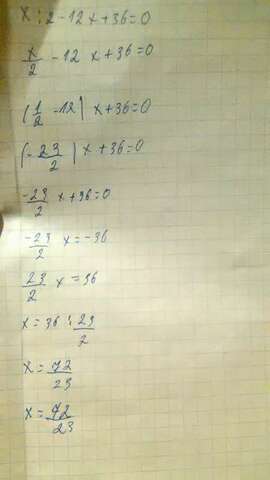 x : 2 - 12x + 36 = 0
x/2 - 12 x + 36 = 0
(1/2 - 12) x + 36 = 0
(- 23/2) x + 36 = 0
-23/2 x + 36 = 0
-23/2 x = -36
23/2 x = 36
x = 36 : 23/2
x = 72/23
x = 72/23